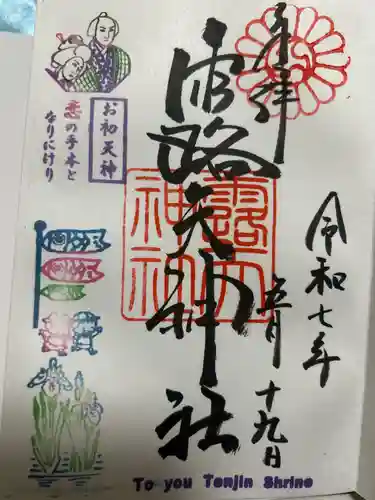 奉拝
露天神社
露天
神社
令和七年
五月十九日
お初天神
恋の手本と
なりにけり
To you Tenjin Shrine